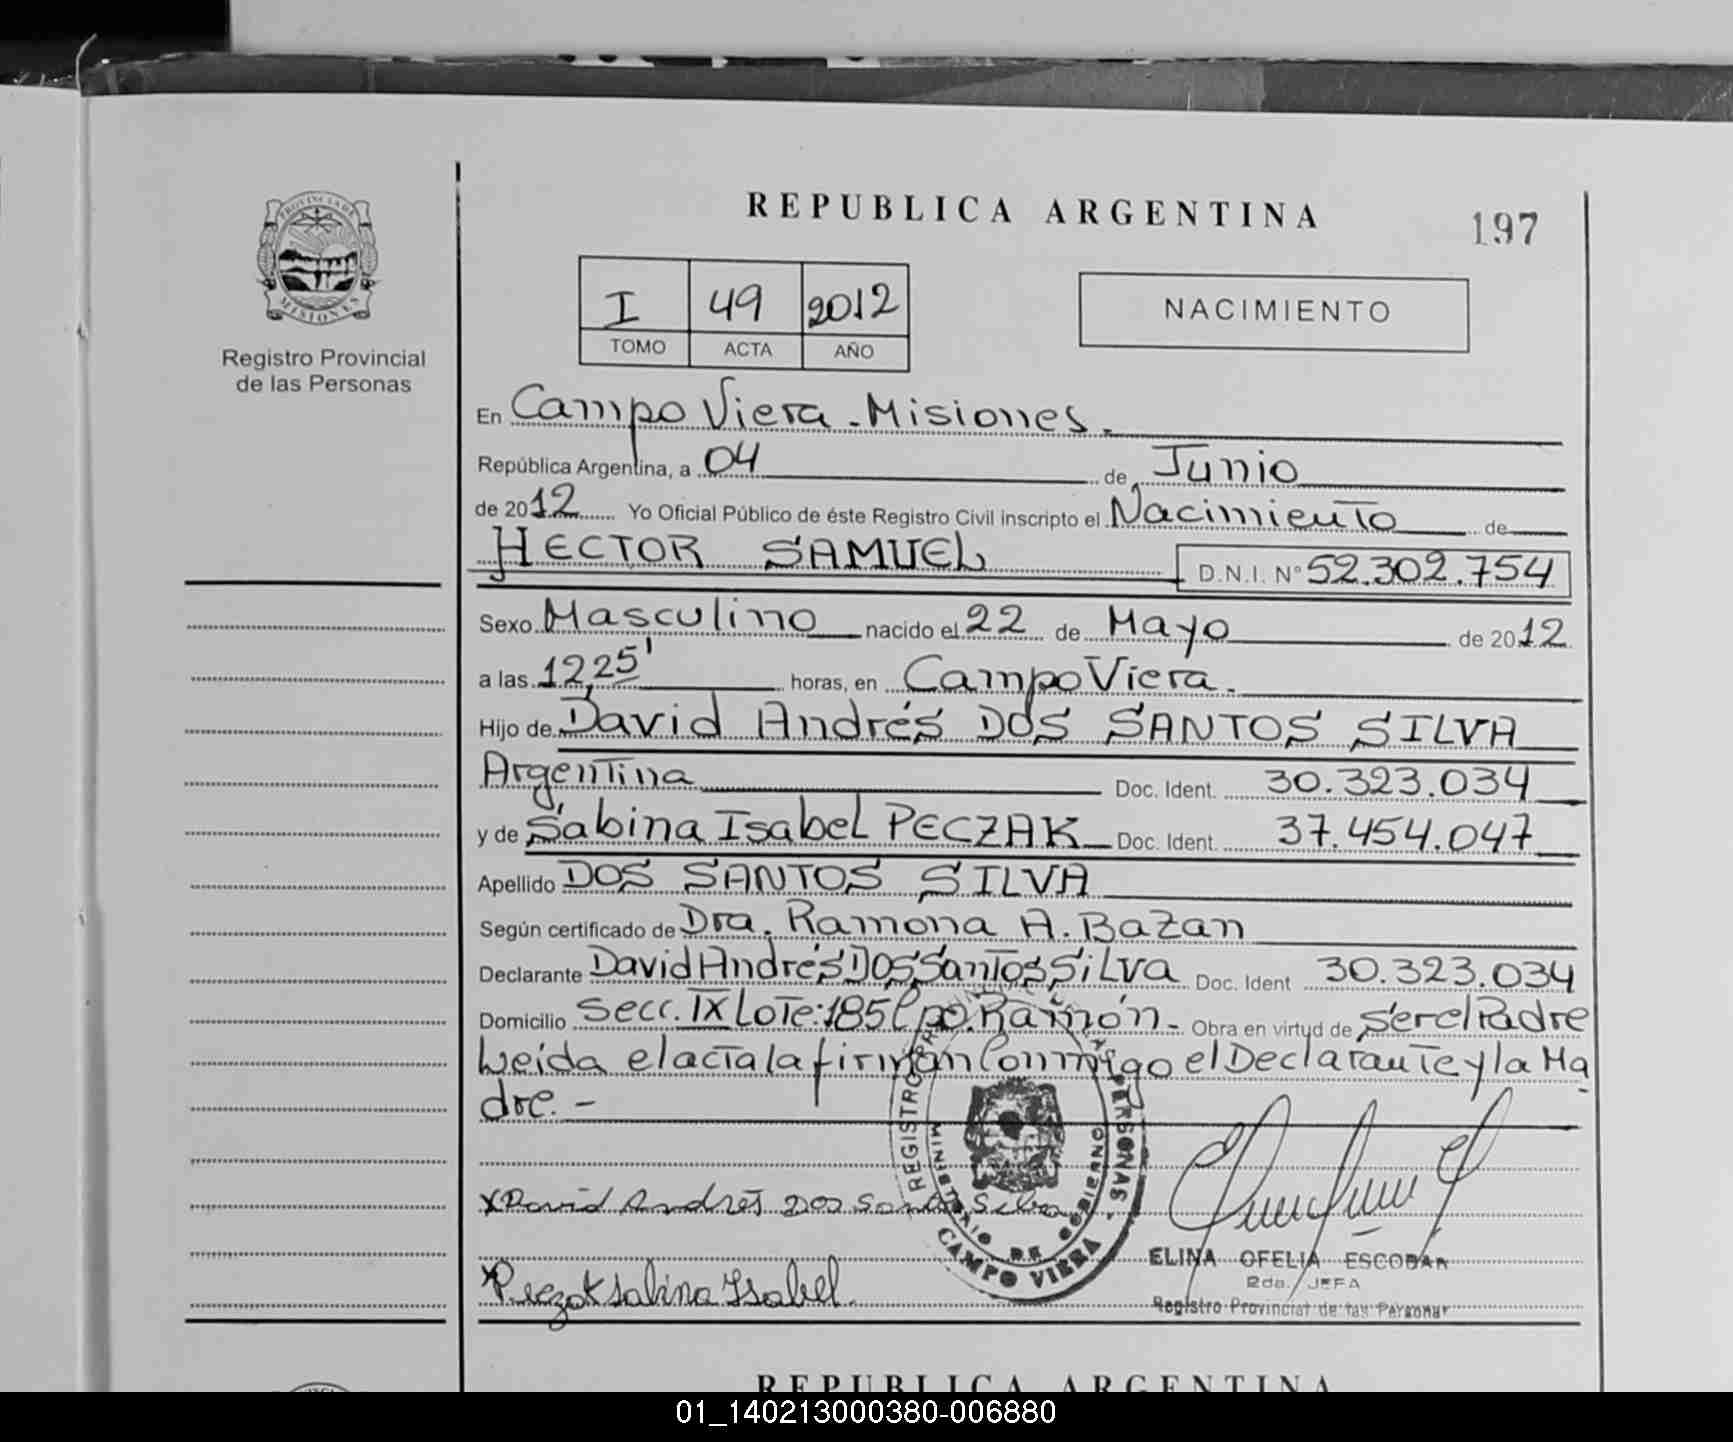 REPUBLICA ARGENTINA
197
PROVINCIA DE
MISIONES
Registro Provincial
de las Personas
I 49 2012
TOMO ACTA AÑO
NACIMIENTO
En Campo Viera - Misiones.
República Argentina, a 04 de Junio
de 2012 Yo Oficial Público de éste Registro Civil inscripto el Nacimiento de
HECTOR SAMUEL D.N.I. Nº 52.302.754
Sexo Masculino nacido el 22 de Mayo de 2012
a las 12,25' horas, en Campo Viera.
Hijo de David Andrés DOS SANTOS SILVA
Argentina Doc. Ident. 30.323.034
y de Sabina Isabel PECZAK Doc. Ident. 37.454.047
Apellido DOS SANTOS SILVA
Según certificado de Dra. Ramona A. Bazan
Declarante David Andrés Dos Santos Silva Doc. Ident 30.323.034
Domicilio Secc. IX Lote: 185 Cpo. Ramón - Obra en virtud de ser el Padre
Leida el acta la firman Conmigo el Declarante y la Ma
dre. -
REGISTRO PERSONAS
MINISTERIO DE GOBIERNO
CAMPO VIERA
x David Andrés Dos Santos Silva
ELINA OFELIA ESCOBAR
2da. JEFA
Registro Provincial de las Personas
x Peczak Sabina Isabel
REPUBLICA ARGENTINA
01_140213000380-006880